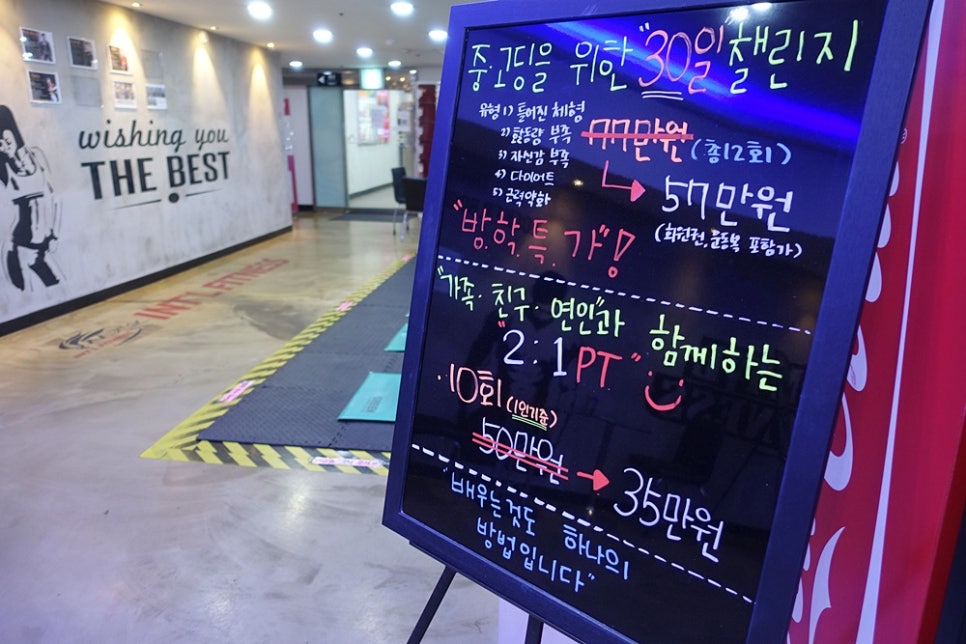 wishing you
THE BEST
INTI FITNESS
중·고딩을 위한 "30일" 챌린지
유형 1) 틀어진 체형
2) 활동량 부족
3) 자신감 부족
4) 다이어트
5) 근력약화
77만원 (총12회)
57만원
(회원권, 운동복 포함가)
"방.학.특.가"!
"가족·친구·연인"과 함께하는
"2:1 PT"
·10회 (1인기준)
50만원
35만원
"배우는것도 하나의
방법입니다"